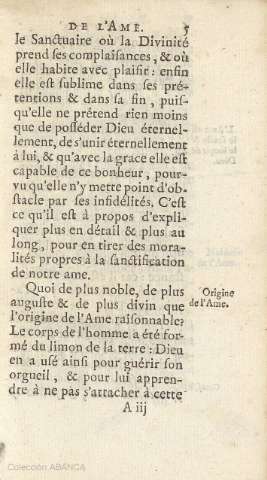 DE L'AME. 5
le Sanctuaire où la Divinité
prend ses complaisances, & où
elle habite avec plaisir : enfin
elle est sublime dans ses pré-
tentions & dans sa fin, puis-
qu'elle ne prétend rien moins
que de posséder Dieu éternel-
lement, de s'unir éternellement
à lui, & qu'avec la grace elle est
capable de ce bonheur, pour-
vu qu'elle n'y mette point d'ob-
stacle par ses infidélités. C'est
ce qu'il est à propos d'expli-
quer plus en détail & plus au
long, pour en tirer des mora-
lités propres à la sanctification
de notre ame.
Quoi de plus noble, de plus
auguste & de plus divin que
l'origine de l'Ame raisonnable?
Origine
de l'Ame.
Le corps de l'homme a été for-
mé du limon de la terre : Dieu
en a usé ainsi pour guérir son
orgueil, & pour lui appren-
dre à ne pas s'attacher à cette
A iij
Colección ABANCA